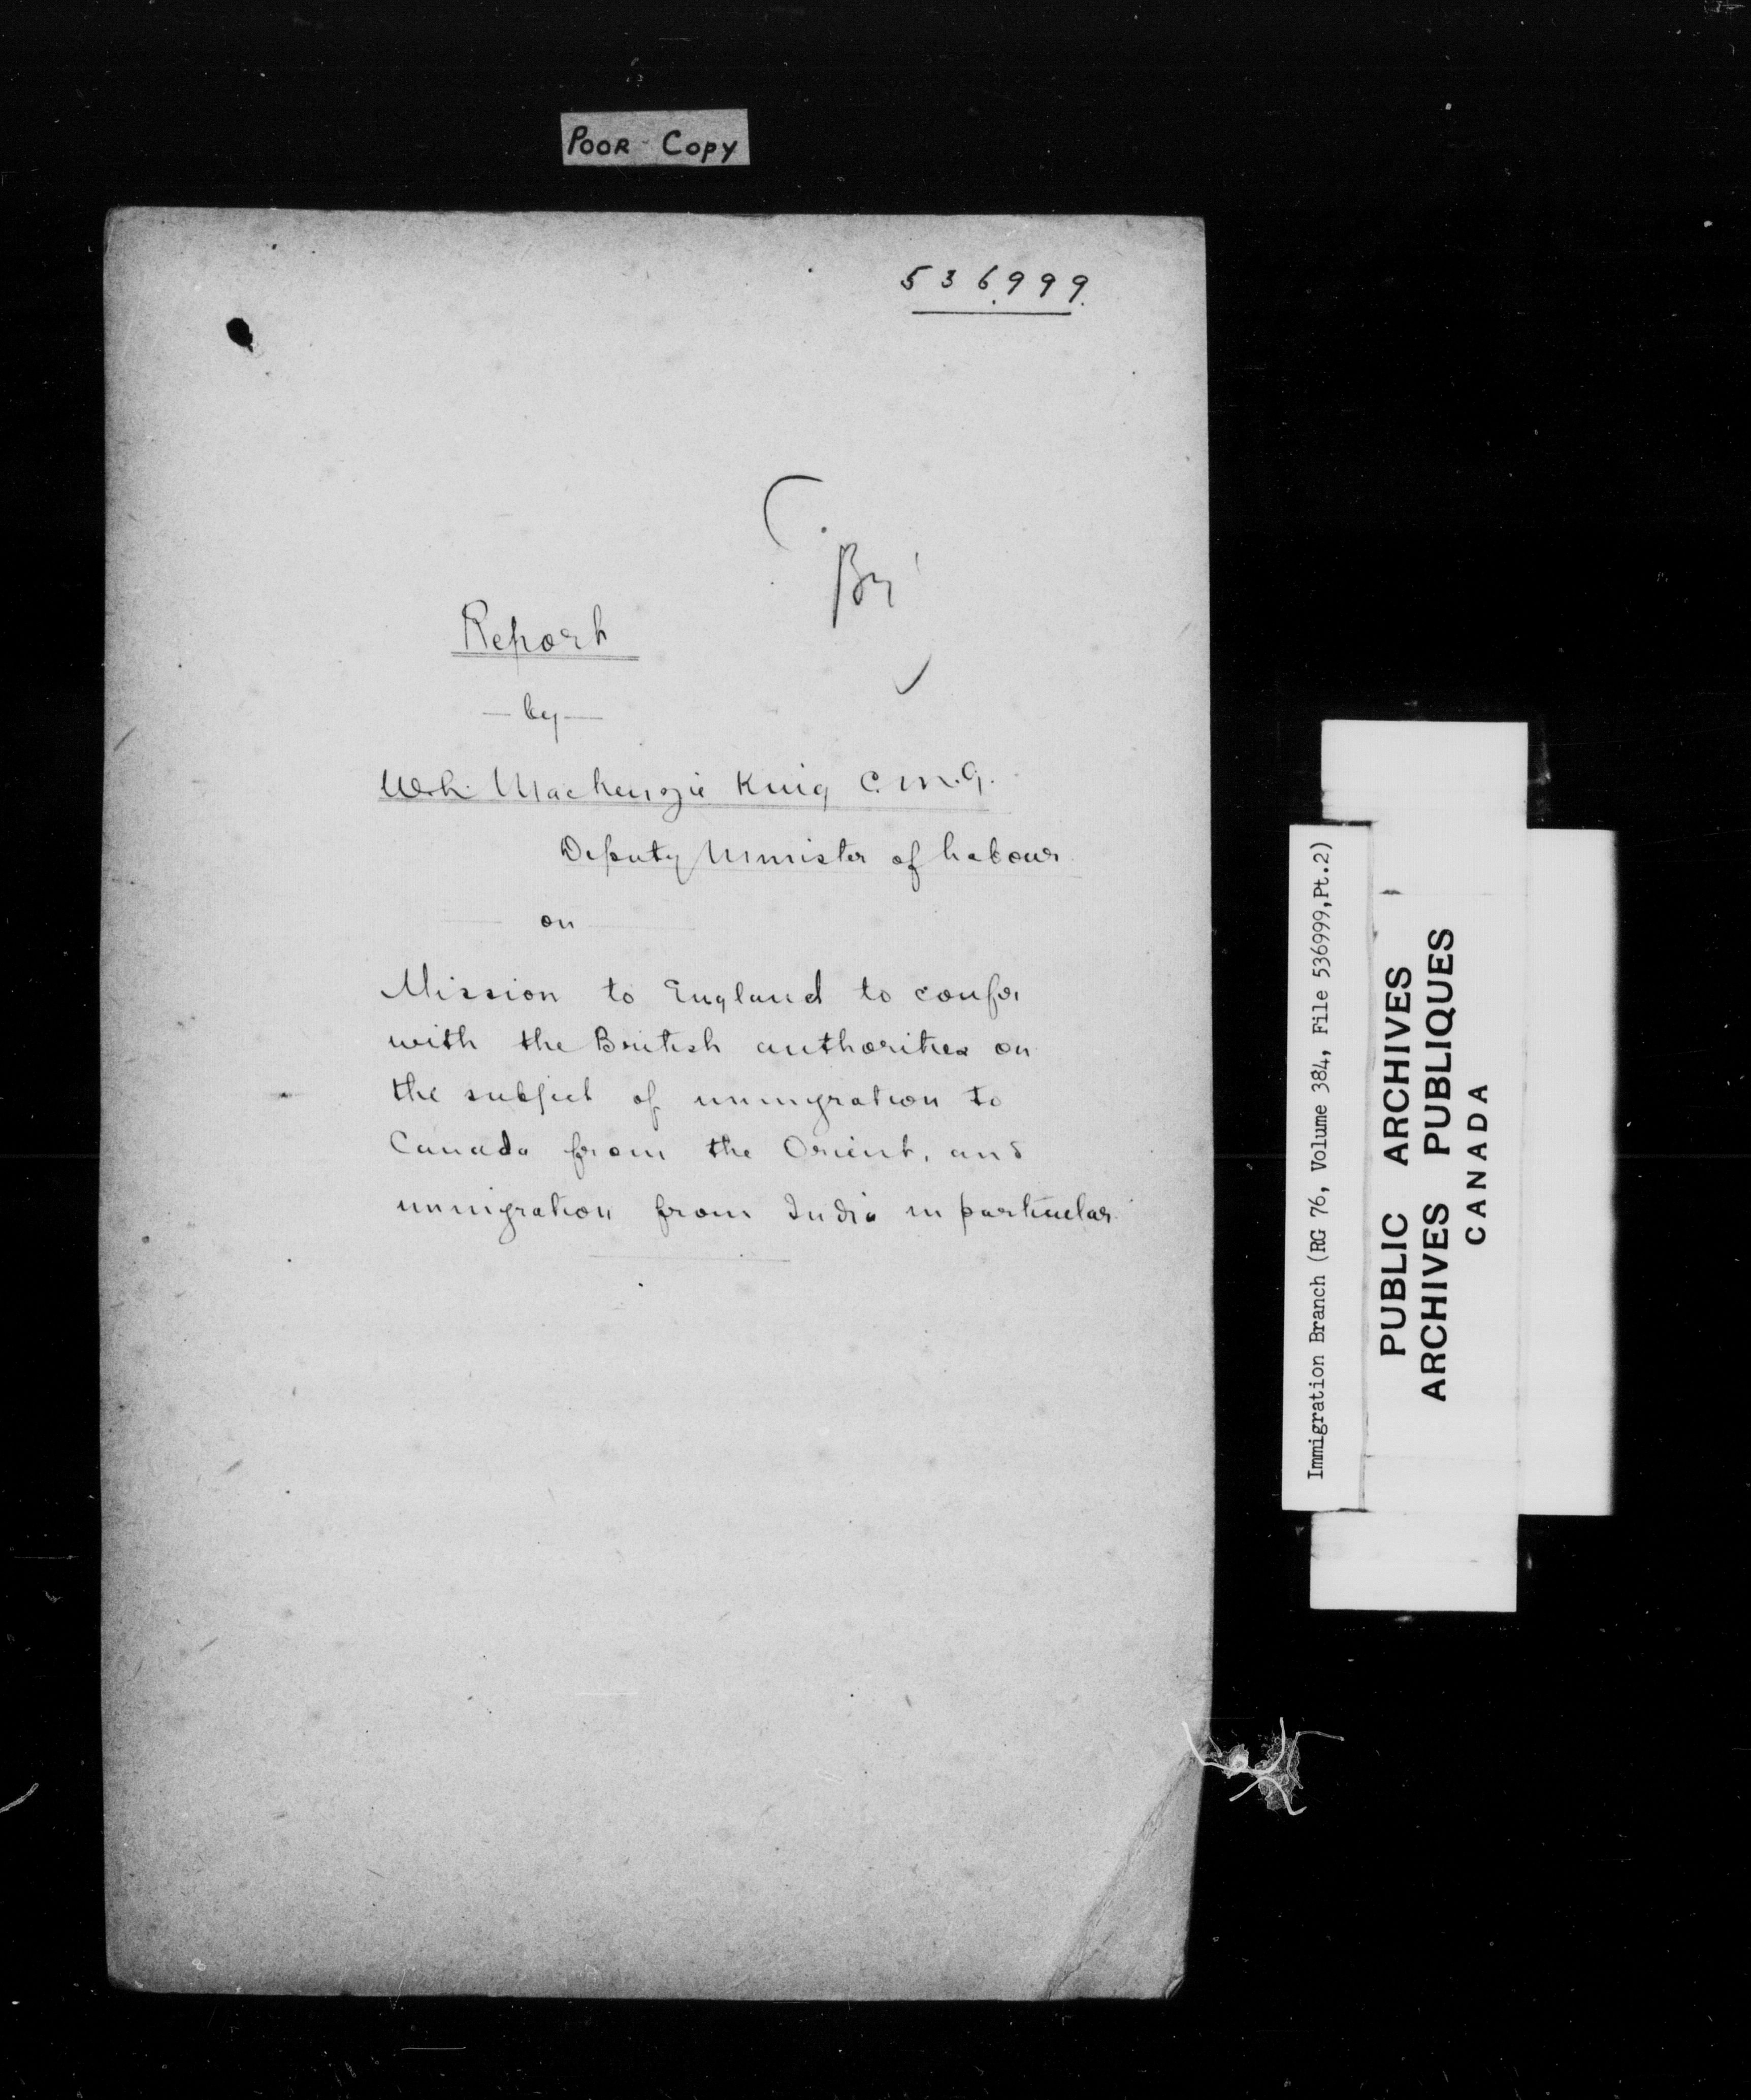 POOR COPY
536999
Report
— by —
W. L. Mackenzie King C.M.G.
Deputy Minister of Labour
on
Mission to England to confer
with the British authorities on
the subject of immigration to
Canada from the Orient, and
immigration from India in particular.
Immigration Branch (RG 76, Volume 384, File 536999,Pt.2)
PUBLIC ARCHIVES
ARCHIVES PUBLIQUES
CANADA